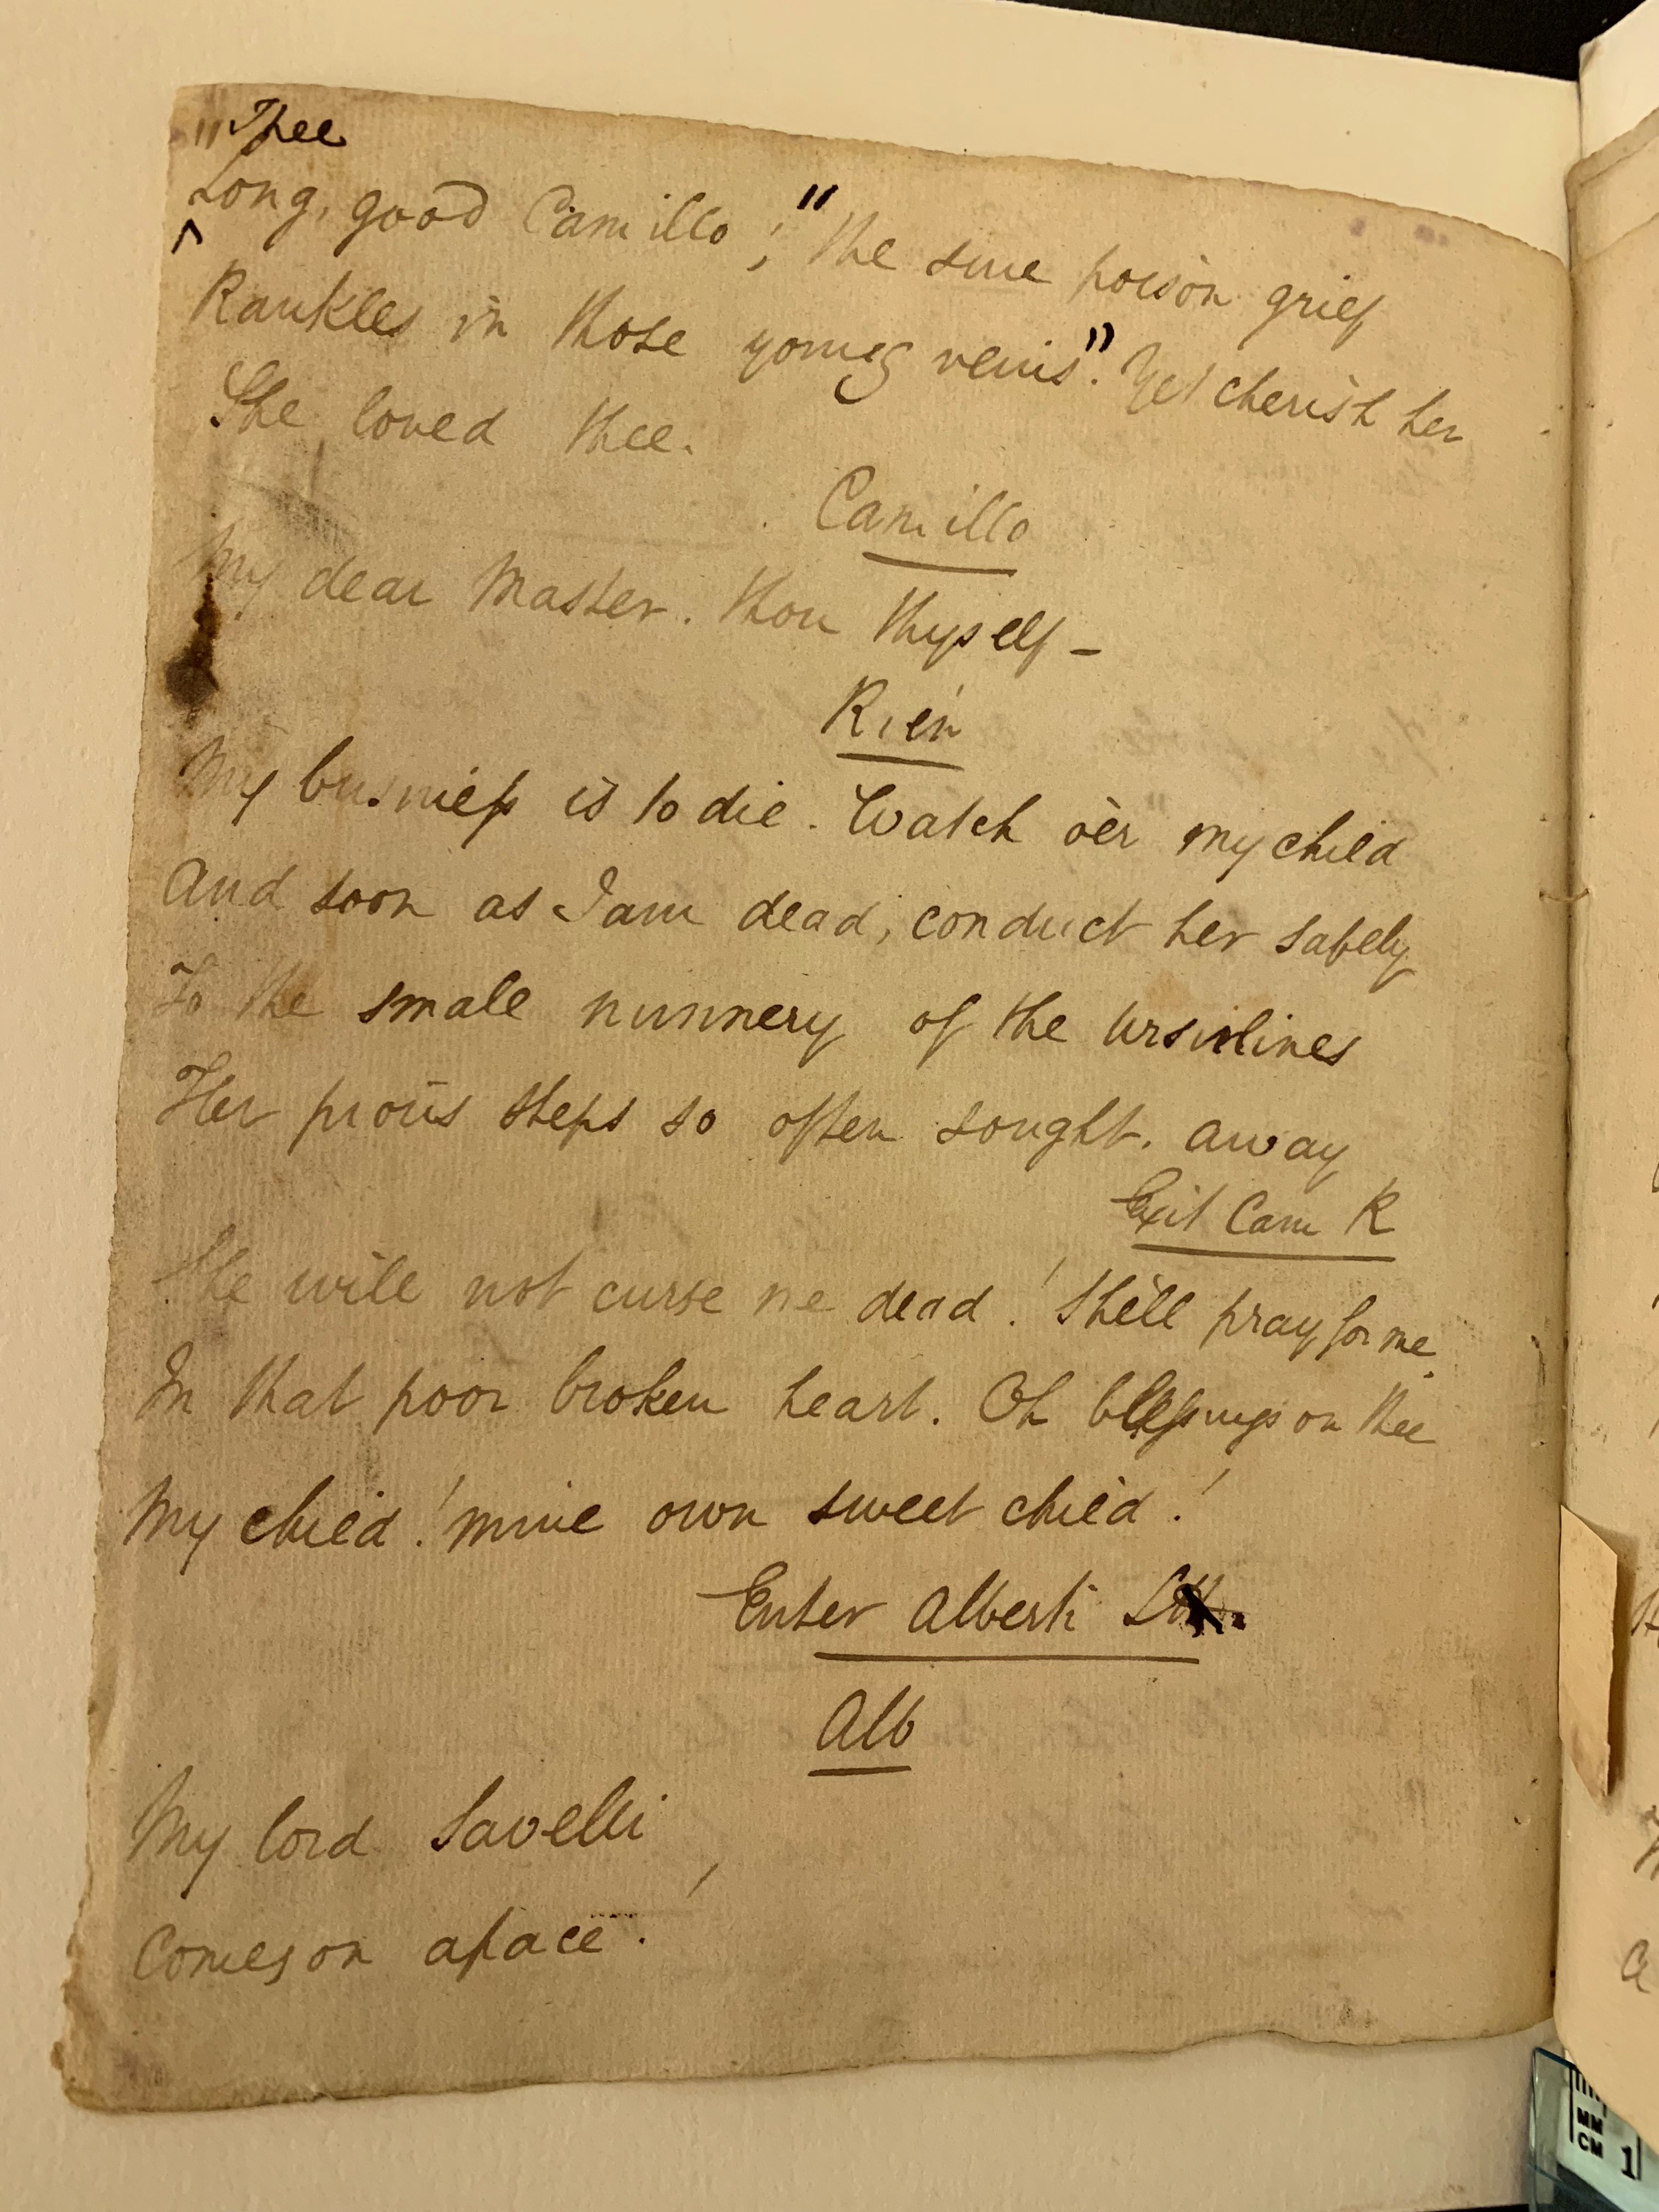 "Thee
Long, good Camillo ;" the sure poison grief
Rankles in those young veins". Yet cherish her
She loved thee.
Camillo
My dear Master. Thou thyself –
Rien
My business is to die. Watch o'er my child
And soon as I am dead, conduct her safely
To the small nunnery of the Ursulines
Her pious steps so often sought. away
Exit Cam R
She will not curse me dead! She'll pray for me
In that poor broken heart. Oh blessings on thee
My child! mine own sweet child!
Enter Alberti
Alb
My lord Savelli
Comes on apace!
MM
CM 1